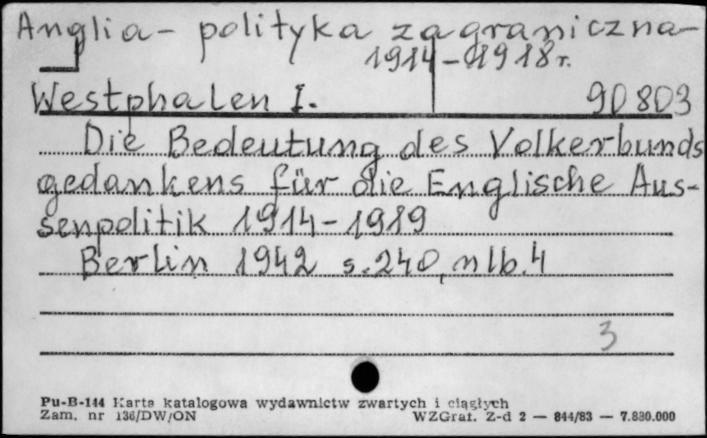 Anglia - polityka zagraniczna -
1914-1918r.
Westphalen I. 90803
Die Bedeutung des Volkerbunds
gedankens für die Englische Aus-
senpolitik 1914-1919
Berlin 1942 s.240, nlb.4
3
Pu-B-144 Karta katalogowa wydawnictw zwartych i ciągłych
Zam. nr 136/DW/ON WZGraf. Z-d 2 — 844/83 — 7.830.000